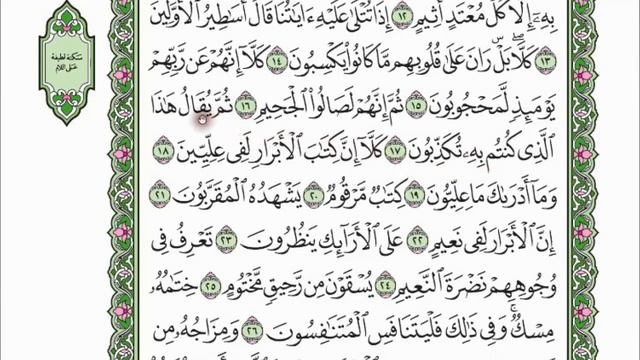 بِهِۦٓ إِلَّا كُلُّ مُعْتَدٍ أَثِيمٍ ١٢ إِذَا تُتْلَىٰ عَلَيْهِ ءَايَٰتُنَا قَالَ أَسَٰطِيرُ ٱلْأَوَّلِينَ
١٣ كَلَّا ۖ بَلْ ۜ رَانَ عَلَىٰ قُلُوبِهِم مَّا كَانُوا۟ يَكْسِبُونَ ١٤ كَلَّآ إِنَّهُمْ عَن رَّبِّهِمْ
يَوْمَئِذٍ لَّمَحْجُوبُونَ ١٥ ثُمَّ إِنَّهُمْ لَصَالُوا۟ ٱلْجَحِيمِ ١٦ ثُمَّ يُقَالُ هَٰذَا
ٱلَّذِى كُنتُم بِهِۦ تُكَذِّبُونَ ١٧ كَلَّآ إِنَّ كِتَٰبَ ٱلْأَبْرَارِ لَفِى عِلِّيِّينَ ١٨
وَمَآ أَدْرَىٰكَ مَا عِلِّيُّونَ ١٩ كِتَٰبٌ مَّرْقُومٌ ٢٠ يَشْهَدُهُ ٱلْمُقَرَّبُونَ ٢١
إِنَّ ٱلْأَبْرَارَ لَفِى نَعِيمٍ ٢٢ عَلَى ٱلْأَرَآئِكِ يَنظُرُونَ ٢٣ تَعْرِفُ فِى
وُجُوهِهِمْ نَضْرَةَ ٱلنَّعِيمِ ٢٤ يُسْقَوْنَ مِن رَّحِيقٍ مَّخْتُومٍ ٢٥ خِتَٰمُهُۥ
مِسْكٌ ۚ وَفِى ذَٰلِكَ فَلْيَتَنَافَسِ ٱلْمُتَنَٰفِسُونَ ٢٦ وَمِزَاجُهُۥ مِن
سكتة لطيفة
على اللام